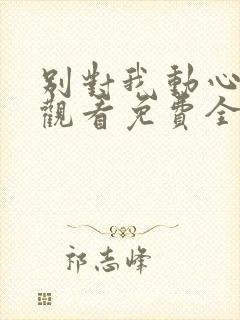 別對我動心
觀看免費全
祁志峰